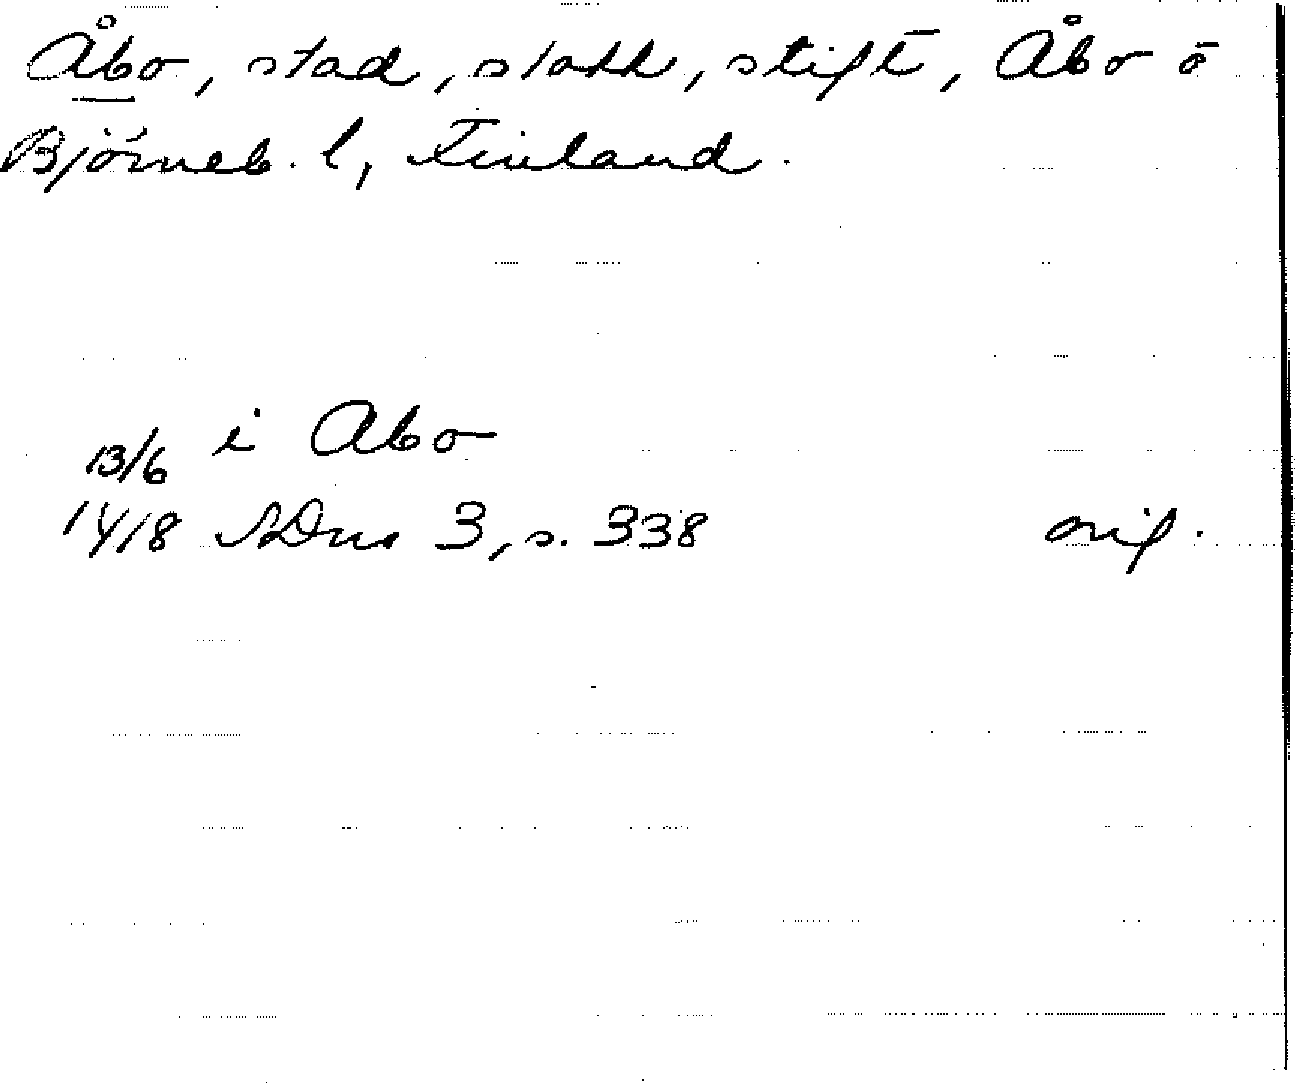 Åbo, stad, slott, stift, Åbo o
Björneb. l, Finland.
13/6 i Abo
1418 SDns 3, s. 338 orig.